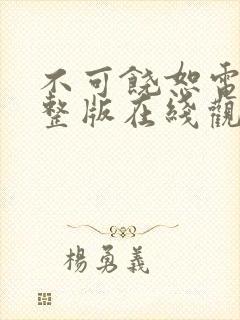 不可饒恕電
整版在綫觀
楊勇義